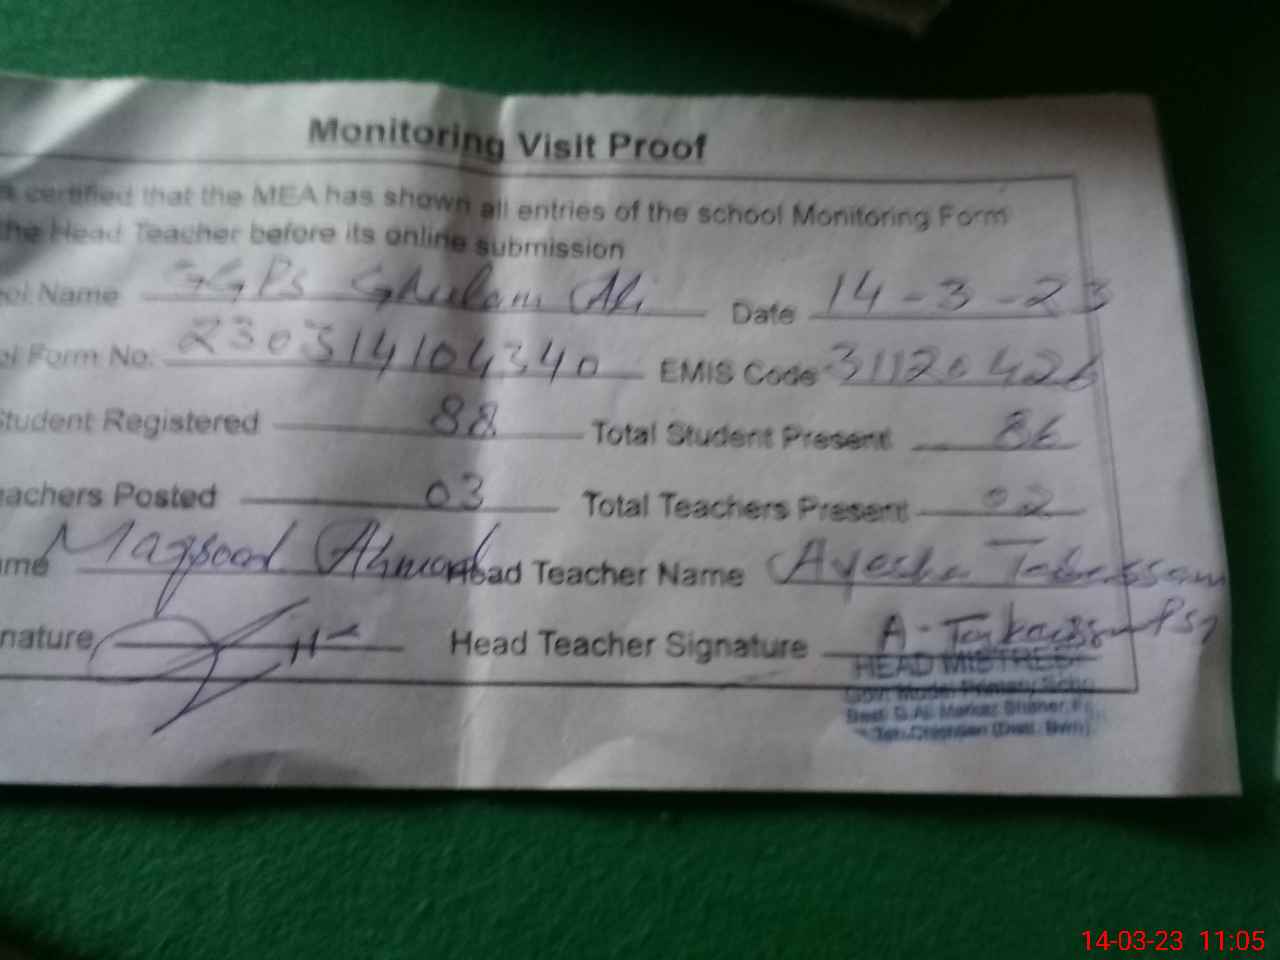 Monitoring Visit Proof
certified that the MEA has shown all entries of the school Monitoring Form
the Head Teacher before its online submission
ol Name GGPS Ghulam Ali Date 14-3-23
ol Form No. 230314104340 EMIS Code 31120426
Student Registered 88 Total Student Present 86
eachers Posted 03 Total Teachers Present 02
ame Maqsood Ahmad Head Teacher Name Ayesha Tabassam
nature Head Teacher Signature A-Tabassum PST
HEAD MISTRESS
Govt Model Primary Scho
14-03-23 11:05